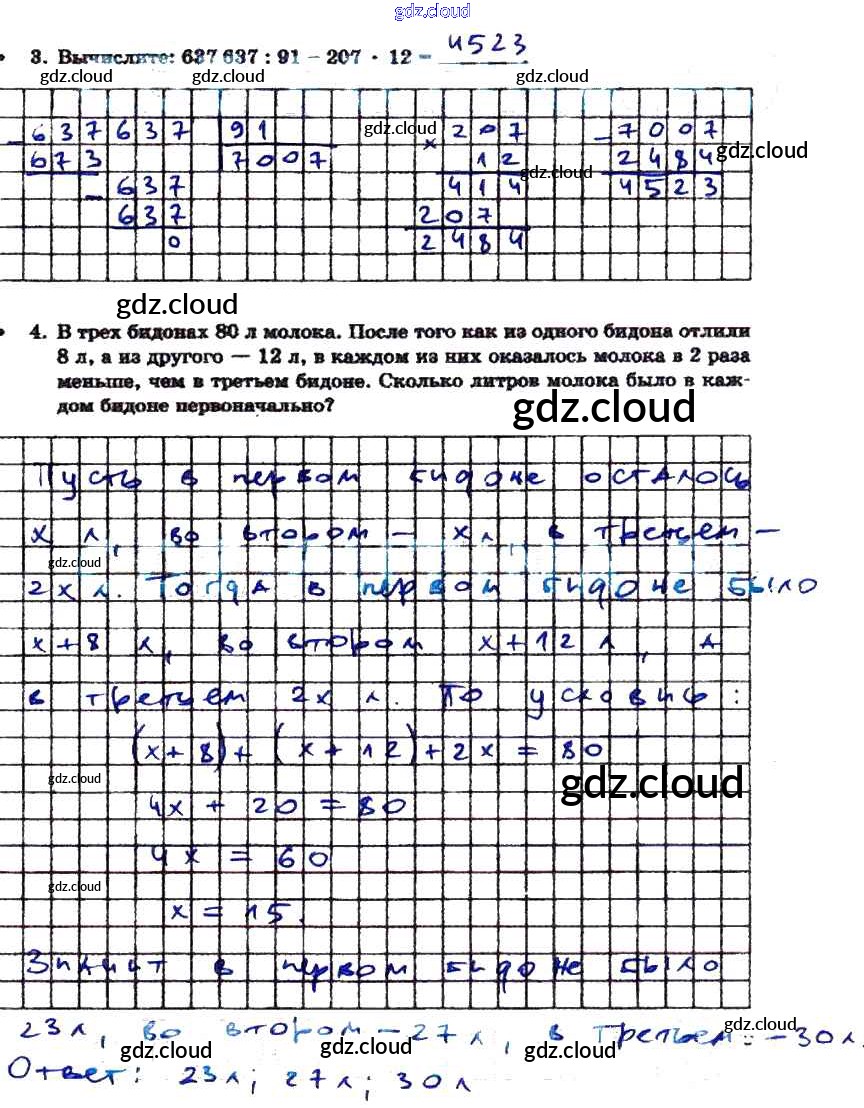 gdz.cloud
3. Вычислите: 637 637 : 91 – 207 · 12 = 4523
gdz.cloud gdz.cloud gdz.cloud
637637 91 gdz.cloud × 207 – 7007
673 7007 12 2484 gdz.cloud
– 637 414 gdz.cloud 4523
637 207
0 2484
gdz.cloud
4. В трех бидонах 80 л молока. После того как из одного бидона отлили
8 л, а из другого — 12 л, в каждом из них оказалось молока в 2 раза
меньше, чем в третьем бидоне. Сколько литров молока было в каж-
дом бидоне первоначально?
gdz.cloud
Пусть в первом бидоне осталось
х л, во втором – х л, в третьем –
gdz.cloud
2х л. Тогда в первом бидоне было
х + 8 л, во втором х + 12 л, а
в третьем 2х л. По условию:
(х + 8) + (х + 12) + 2х = 80
gdz.cloud gdz.cloud
4х + 20 = 80
4х = 60
gdz.cloud
х = 15.
Значит в первом бидоне было
23 л, во втором – 27 л, в третьем – 30 л.
gdz.cloud gdz.cloud gdz.cloud gdz.cloud
Ответ: 23 л; 27 л; 30 л